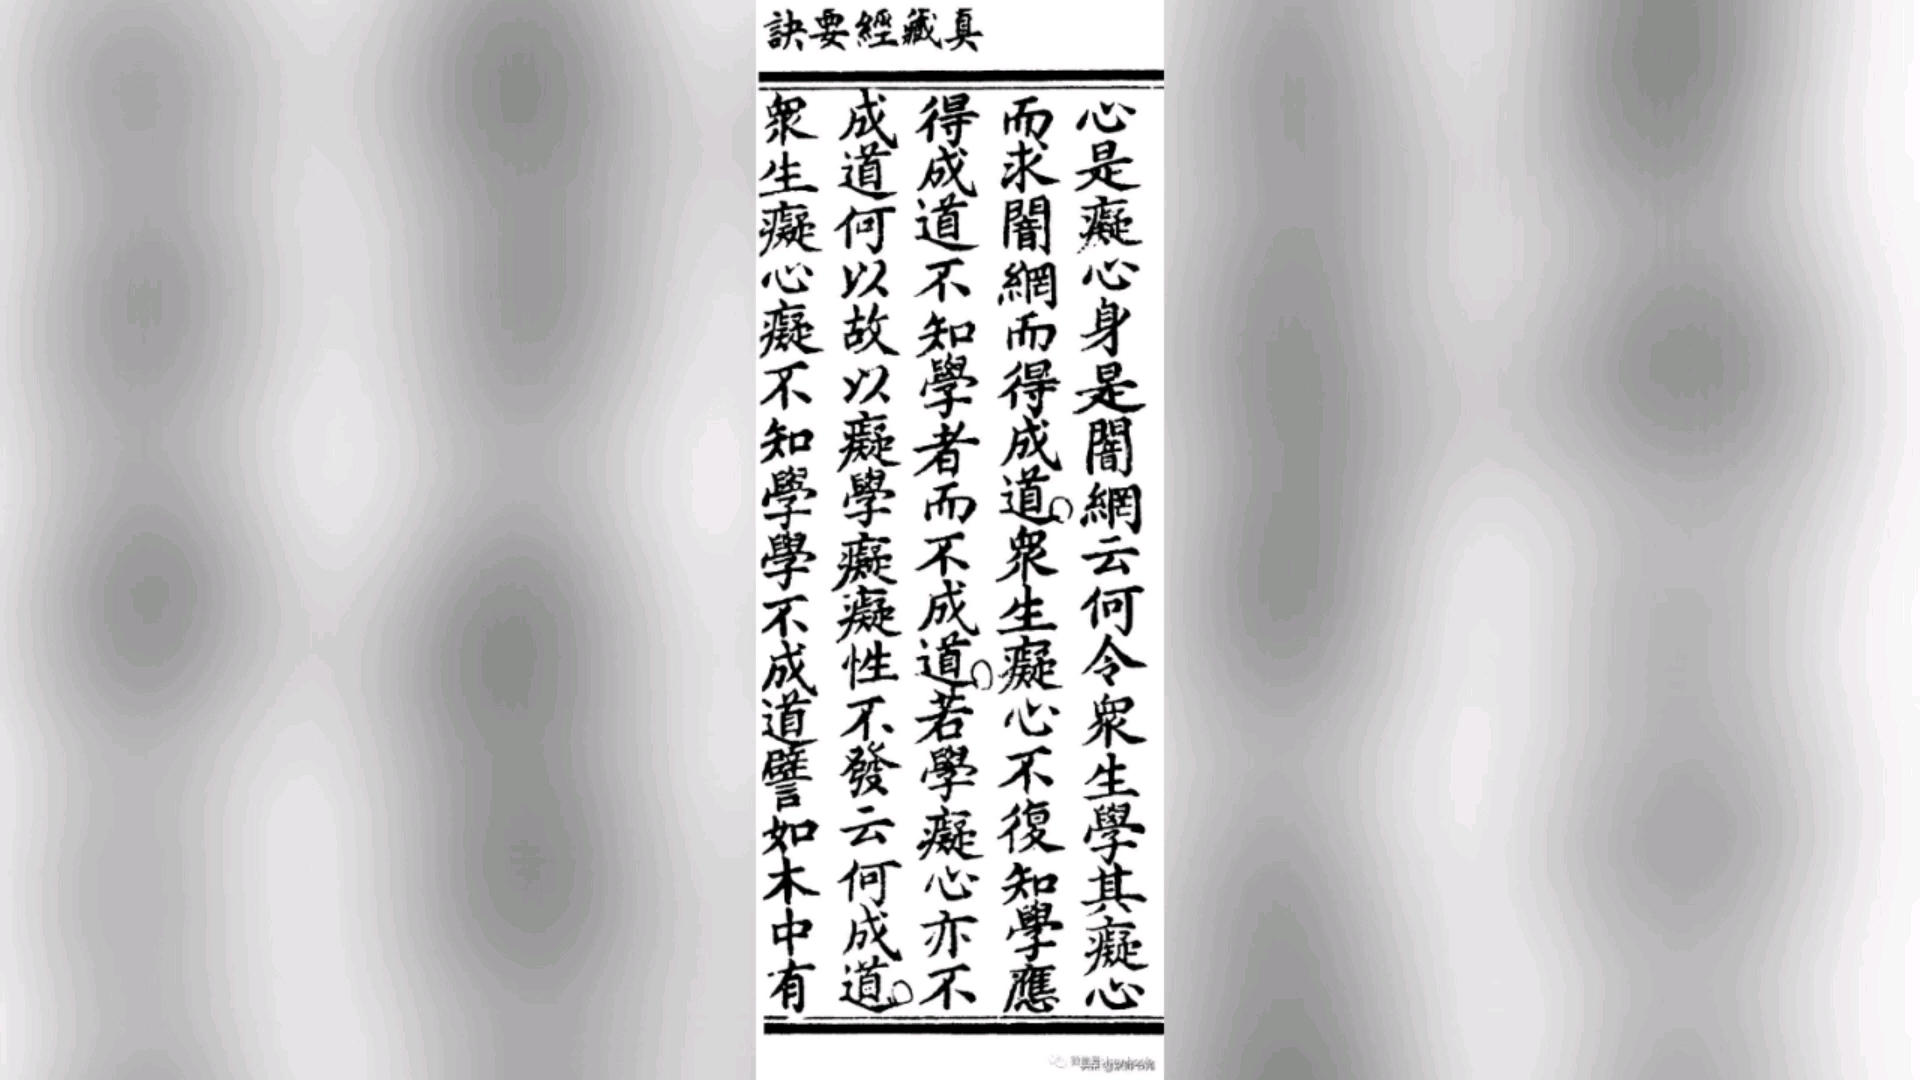 真藏經要訣
心是癡心身是闇網云何令衆生學其癡心
而求闇網而得成道衆生癡心不復知學應
得成道不知學者而不成道若學癡心亦不
成道何以故以癡學癡癡性不發云何成道
衆生癡心癡不知學學不成道譬如木中有